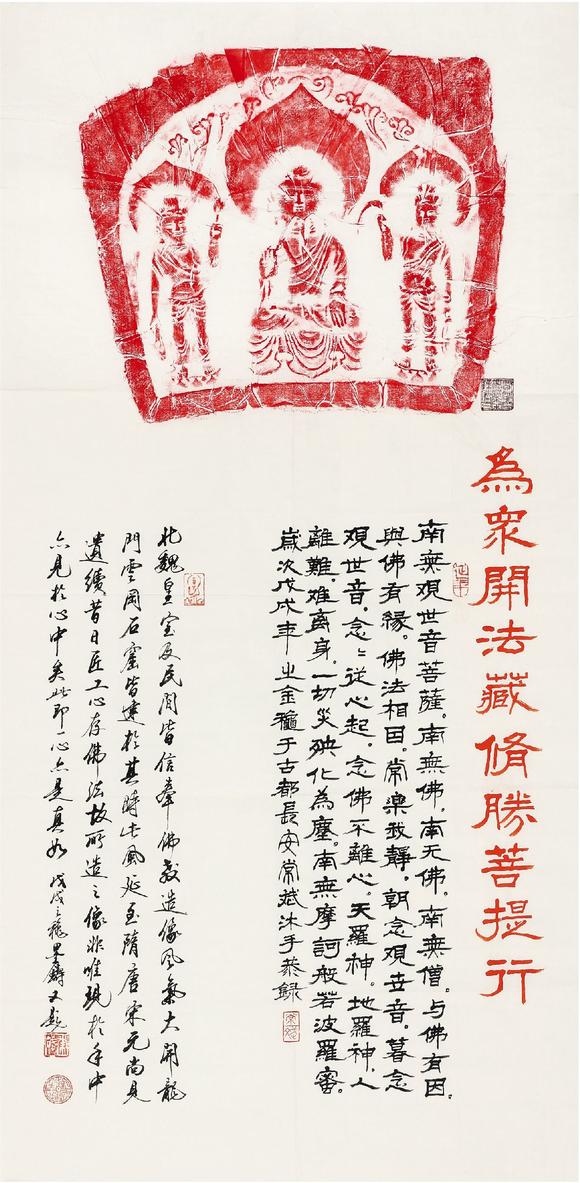 為眾開法藏脩勝菩提行
南無观世音菩薩。南無佛。南无佛。南無僧。与佛有因。
與佛有緣。佛法相因。常樂我靜。朝念观世音。暮念
观世音。念念従心起。念佛不離心。天羅神。地羅神。人
離難。难离身。一切災殃化為塵。南無摩訶般若波羅蜜。
歲次戊戌年之金龝于古都長安常斌沐手恭録
北魏皇室及民间皆信奉佛教造像风氣大開龍
門雲岡石窟皆建於其時此風延至隋唐宋元尚見
遺續昔日匠工心存佛法故所造之像非唯現於手中
亦見於心中矣此即一心亦是真如
戊戌之龝 又题